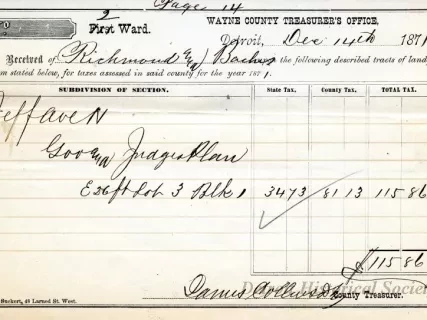 Page 14
2
First Ward.
WAYNE COUNTY TREASURER'S OFFICE,
Detroit, Dec 14th 1871
Received of Richmond and Backus the following described tracts of land
m stated below, for taxes assessed in said county for the year 1871.
SUBDIVISION OF SECTION. State Tax. County Tax. TOTAL TAX.
Jeff Ave N
Gov and Judges Plan
E 26 ft Lot 3 Blk 1 34 73 81 13 115 86
$115 86
Historical Socie
James County Treasurer.
Suckert, 48 Larned St. West.